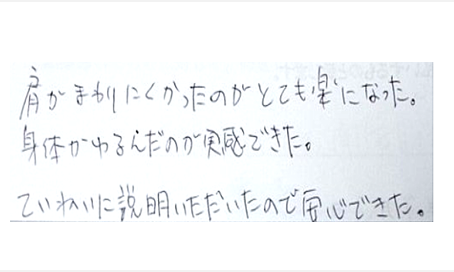 肩がまわりにくかったのがとても楽になった。
身体かわるんだのが実感できた。
ていねいに説明いただいたので安心できた。